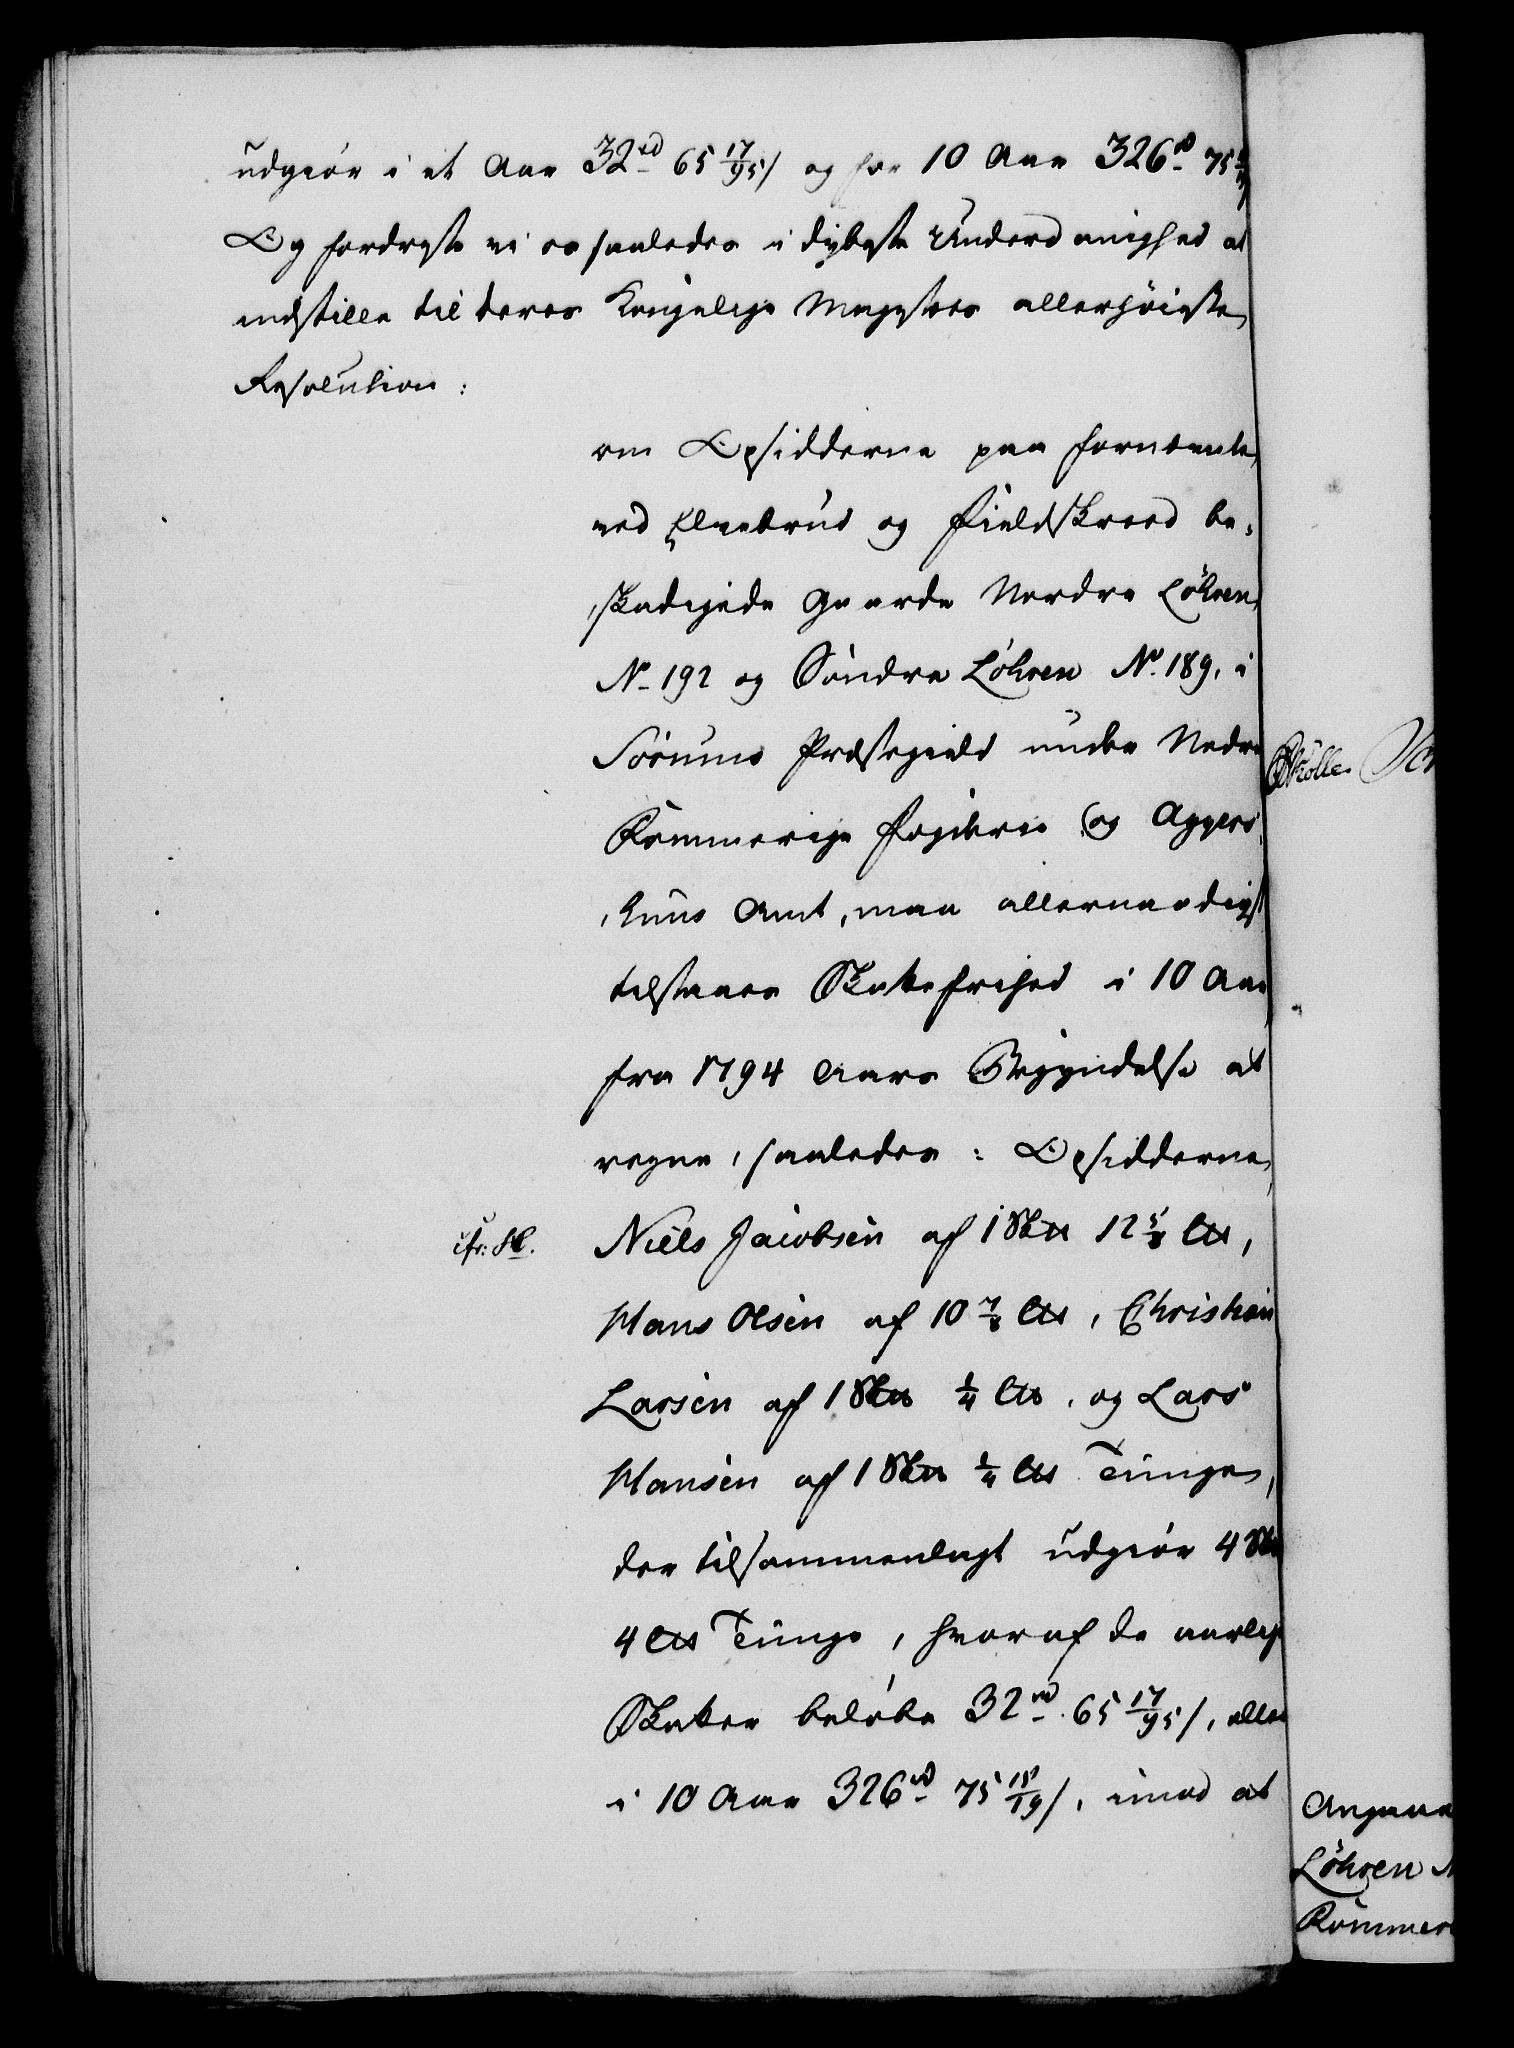 udgiør i et Aar 32 rd 65 17/95 s og for 10 Aar 326 rd 75
Og fordriste vi os saaledes i dybeste Underdanighed at
indstille til Deres Kongelige Majestæts allerhøieste
Resolution:
om Opsidderne paa fornævnte
ved Elvebrud og Fieldskreed be-
skadigede Gaarde Nordre Løhren
No. 192 og Søndre Løhren No. 189, i
Sørums Præstegield under Nedre
Rommerige Fogderie og Aggers-
huus Amt, maa allernaadigst
tilstaaes Skattefrihed i 10 Aar
fra 1794 Aars Begyndelse at
regne, saaledes: Opsidderne
Niels Jacobsen af 1 Sk℔ 12 5/8 L℔,
Hans Olsen af 10 7/8 L℔, Christian
Larsen af 1 Sk℔ 1/4 L℔, og Lars
Hansen af 1 Sk℔ 1/4 L℔ Tunge,
der tilsammenlagt udgiør 4 Sk℔
4 L℔ Tunge, hvoraf de aarlige
Skatter beløbe 32 rd 65 17/95 s, eller
i 10 Aar 326 rd 75 15/19 s, imod at
cfr:
Angaae
Løhren
Rommer